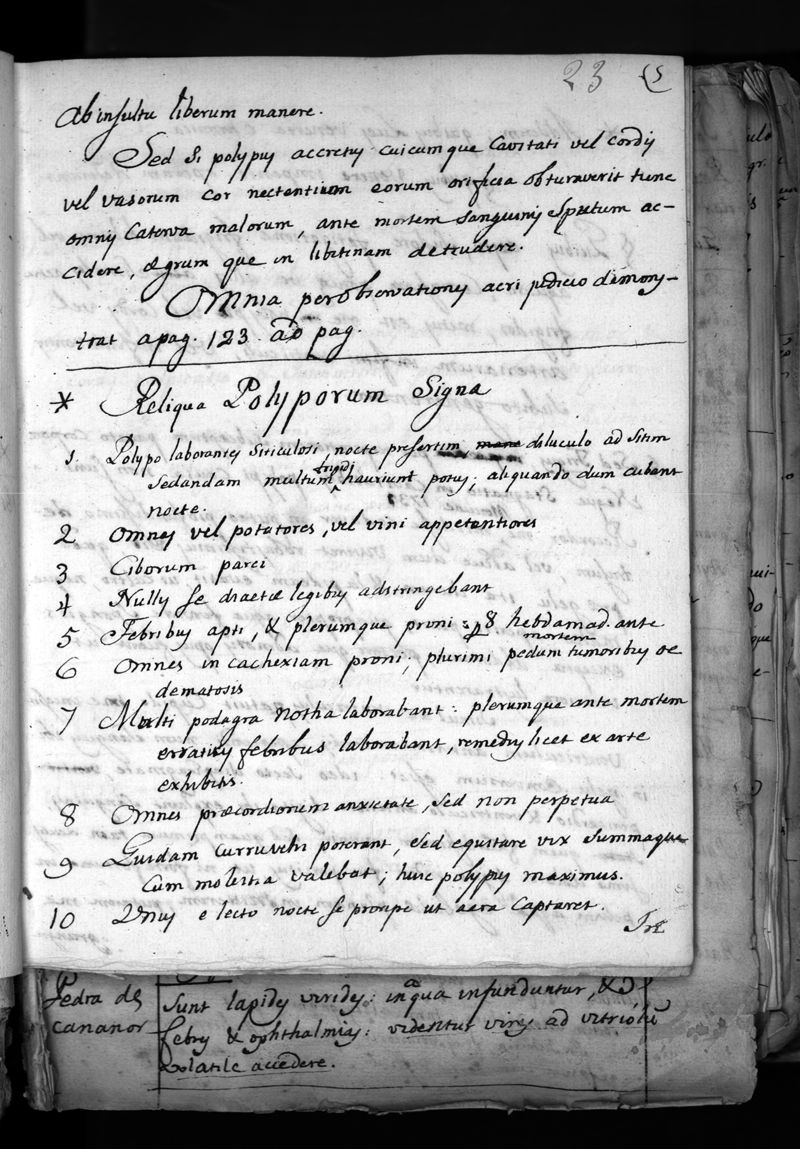 23 (5
Ab insultu liberum manere.
Sed si polypus accretus cuicumque Cavitati vel cordis
vel vasorum cor nectentium eorum orificia obturaverit tunc
omnis Caterva malorum, ante mortem Sanguinis Sputum ac-
cidere, ægrum que in libitinam detrudere.
Omnia per observationes acri judicio demons-
trat a pag. 123. ad pag.
* Reliqua Polyporum Signa
1. Polypo laborantes siticulosi, nocte presertim, diluculo ad Sitim
Sedandam multum hauriunt potus; aliquando dum cubant
nocte.
2 Omnes vel potatores, vel vini appetentiores
3 Ciborum parci
4 Nullis se diaetæ legibus adstringebant
5 Febribus apti, & plerumque proni 8 hebdamad. ante
mortem
6 Omnes in cachexiam proni; plurimi pedum tumoribus oe
dematosis
7 Multi podagra notha laborabant: plerumque ante mortem
erraticis febribus laborabant, remediis licet ex arte
exhibitis.
8 Omnes præcordiorum anxietate, sed non perpetua
9 Quidam curru vehi poterant, sed equitare vix summaque
Cum molestia valebat; huic polypus maximus.
10 Unus e lecto nocte se proripe ut aera Captaret.
Pedra de
cananor
Sunt lapides virides: in aqua infunduntur, &
febris & ophthalmias: videntur vires ad vitriolu
volatile accedere.